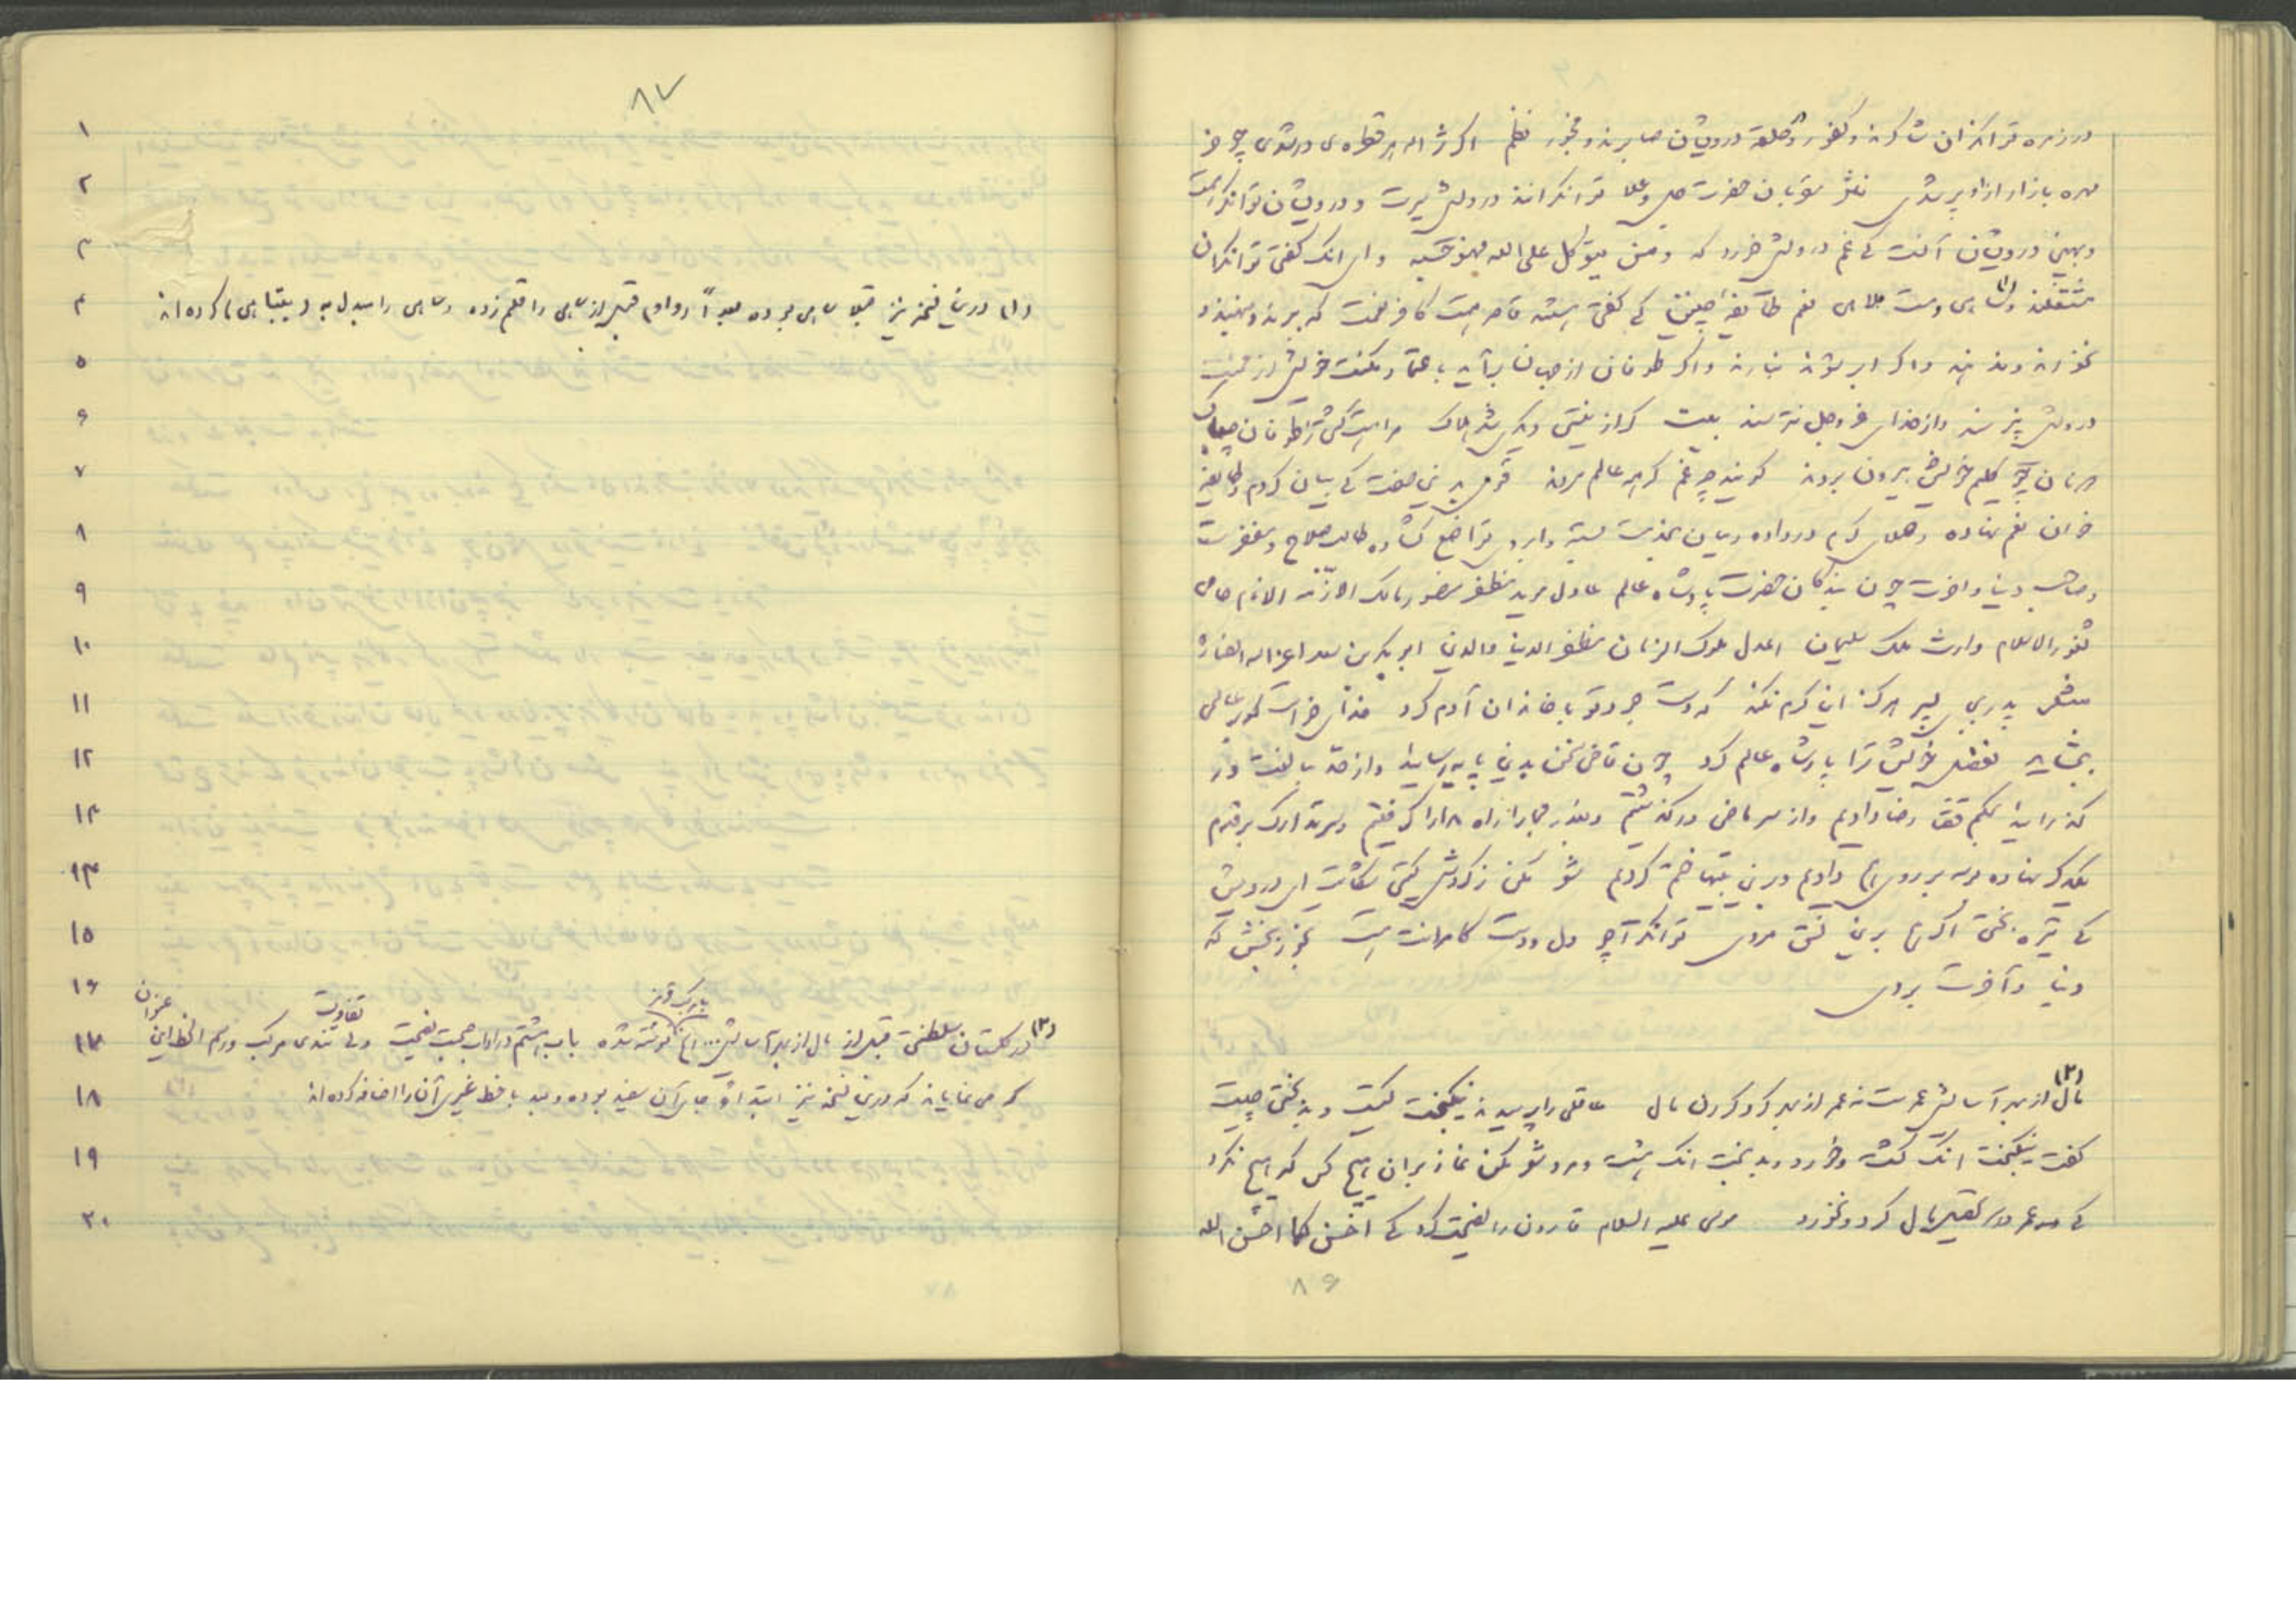 در زمره توانگران شاکرند و کفور و در حلقه درویشان صابرند و ضجور نظم اگر ژاله هر قطره‌ی در شدی چو خر
مهره بازار ازو پر شدی نثر مقربان حضرت جل و علا توانگرانند درویش سیرت و درویشان توانگر همت
و بهین درویشان آنست کی غم درویش خورد که و من یتوکل علی الله فهو حسبه و ای انک گفتی توانگران
مشتغلند و ساهی و مست ملاهی نعم طائفه‌ای چنین کی گفتی هستند قاصر همت کافر نعمت که ببرند و بنهند و
نخورند و ندهند و اگر ابر شود نبارند و اگر طوفان از جهان برآید باعتماد مکنت خویش از محنت
درویش نپرسند و از خدای عز و جل نترسند بیت گر از نیستی دیگری شد هلاک مرا هست بط را ز طوفان چه باک
دونان چو گلیم خویش بیرون بردند گویند چه غم گر همه عالم مردند قومی برین صفت کی بیان کردم و طایفه
خوان نعم نهاده و صلای کرم درداده و میان بخدمت بسته و ابروی تواضع گشاده طالب صلاح و مغفرت
و صاحب دنیا و آخرت چون بندگان حضرت پادشاه عالم عادل موید مظفر منصور مالک ازمّة الانام حامی
ثغور الاسلام وارث ملک سلیمان اعدل ملوک الزمان مظفر الدنیا والدین ابوبکر بن سعد اعز الله انصاره
پدر بجای پسر هرگز این کرم نکند که دست جود تو با خاندان آدم کرد خدای خواست که بر عالمی
ببخشاید بفضل خویش ترا پادشاه عالم کرد چون قاضی سخن بدین پایه رسانید و از حد مبالغت در
گذرانید بحکم قضا رضا دادیم و از سر ماضی درگذشتیم و بعد از مجارا راه مدارا گرفتیم و سر بتدارک بر قدم
یکدیگر نهاده بوسه بر روی هم دادیم و برین بیتها ختم کردیم شعر مکن ز گردش گیتی شکایت ای درویش
کی تیره بختی اگر هم برین نسق مردی توانگرا چو دل و دست کامرانت هست بخور ببخش که
دنیا و آخرت بردی
(۲)
مال از بهر آسایش عمرست نه عمر از بهر گرد کردن مال عاقلی را پرسیدند نیکبخت کیست و بدبختی چیست
گفت نیکبخت انک کشت و خورد و بدبخت انک هشت و مرد شعر مکن نماز بران هیچ کس که هیچ نکرد
کی همه عمر در تحصیل مال کرد و نخورد موسی علیه السلام قارون را نصیحت کرد کی احسن کما احسن الله
۸۶
۸۷
۱
۲
۳
۴
(۱) درین نسخه نیز قبلا ساهی بوده بعداً (و) واو قبل از ساهی را قلم زده و ساهی را مبدل به (بتباهی) کرده‌اند
۵
۶
۷
۸
۹
۱۰
۱۱
۱۲
۱۳
۱۴
۱۵
۱۶
۱۷
(۲) در گلستان سلطنتی قبل از مال از بهر آسایش... الخ نوشته شده باب هشتم در اداب صحبت نصیحت ولی تندی مرکب و رسم الخط این عنوان
۱۸
که می نمایاند که درین نسخه نیز ابتداءً جای آن سفید بوده و بعد با خط غیری آن را اضافه کرده‌اند
۱۹
۲۰